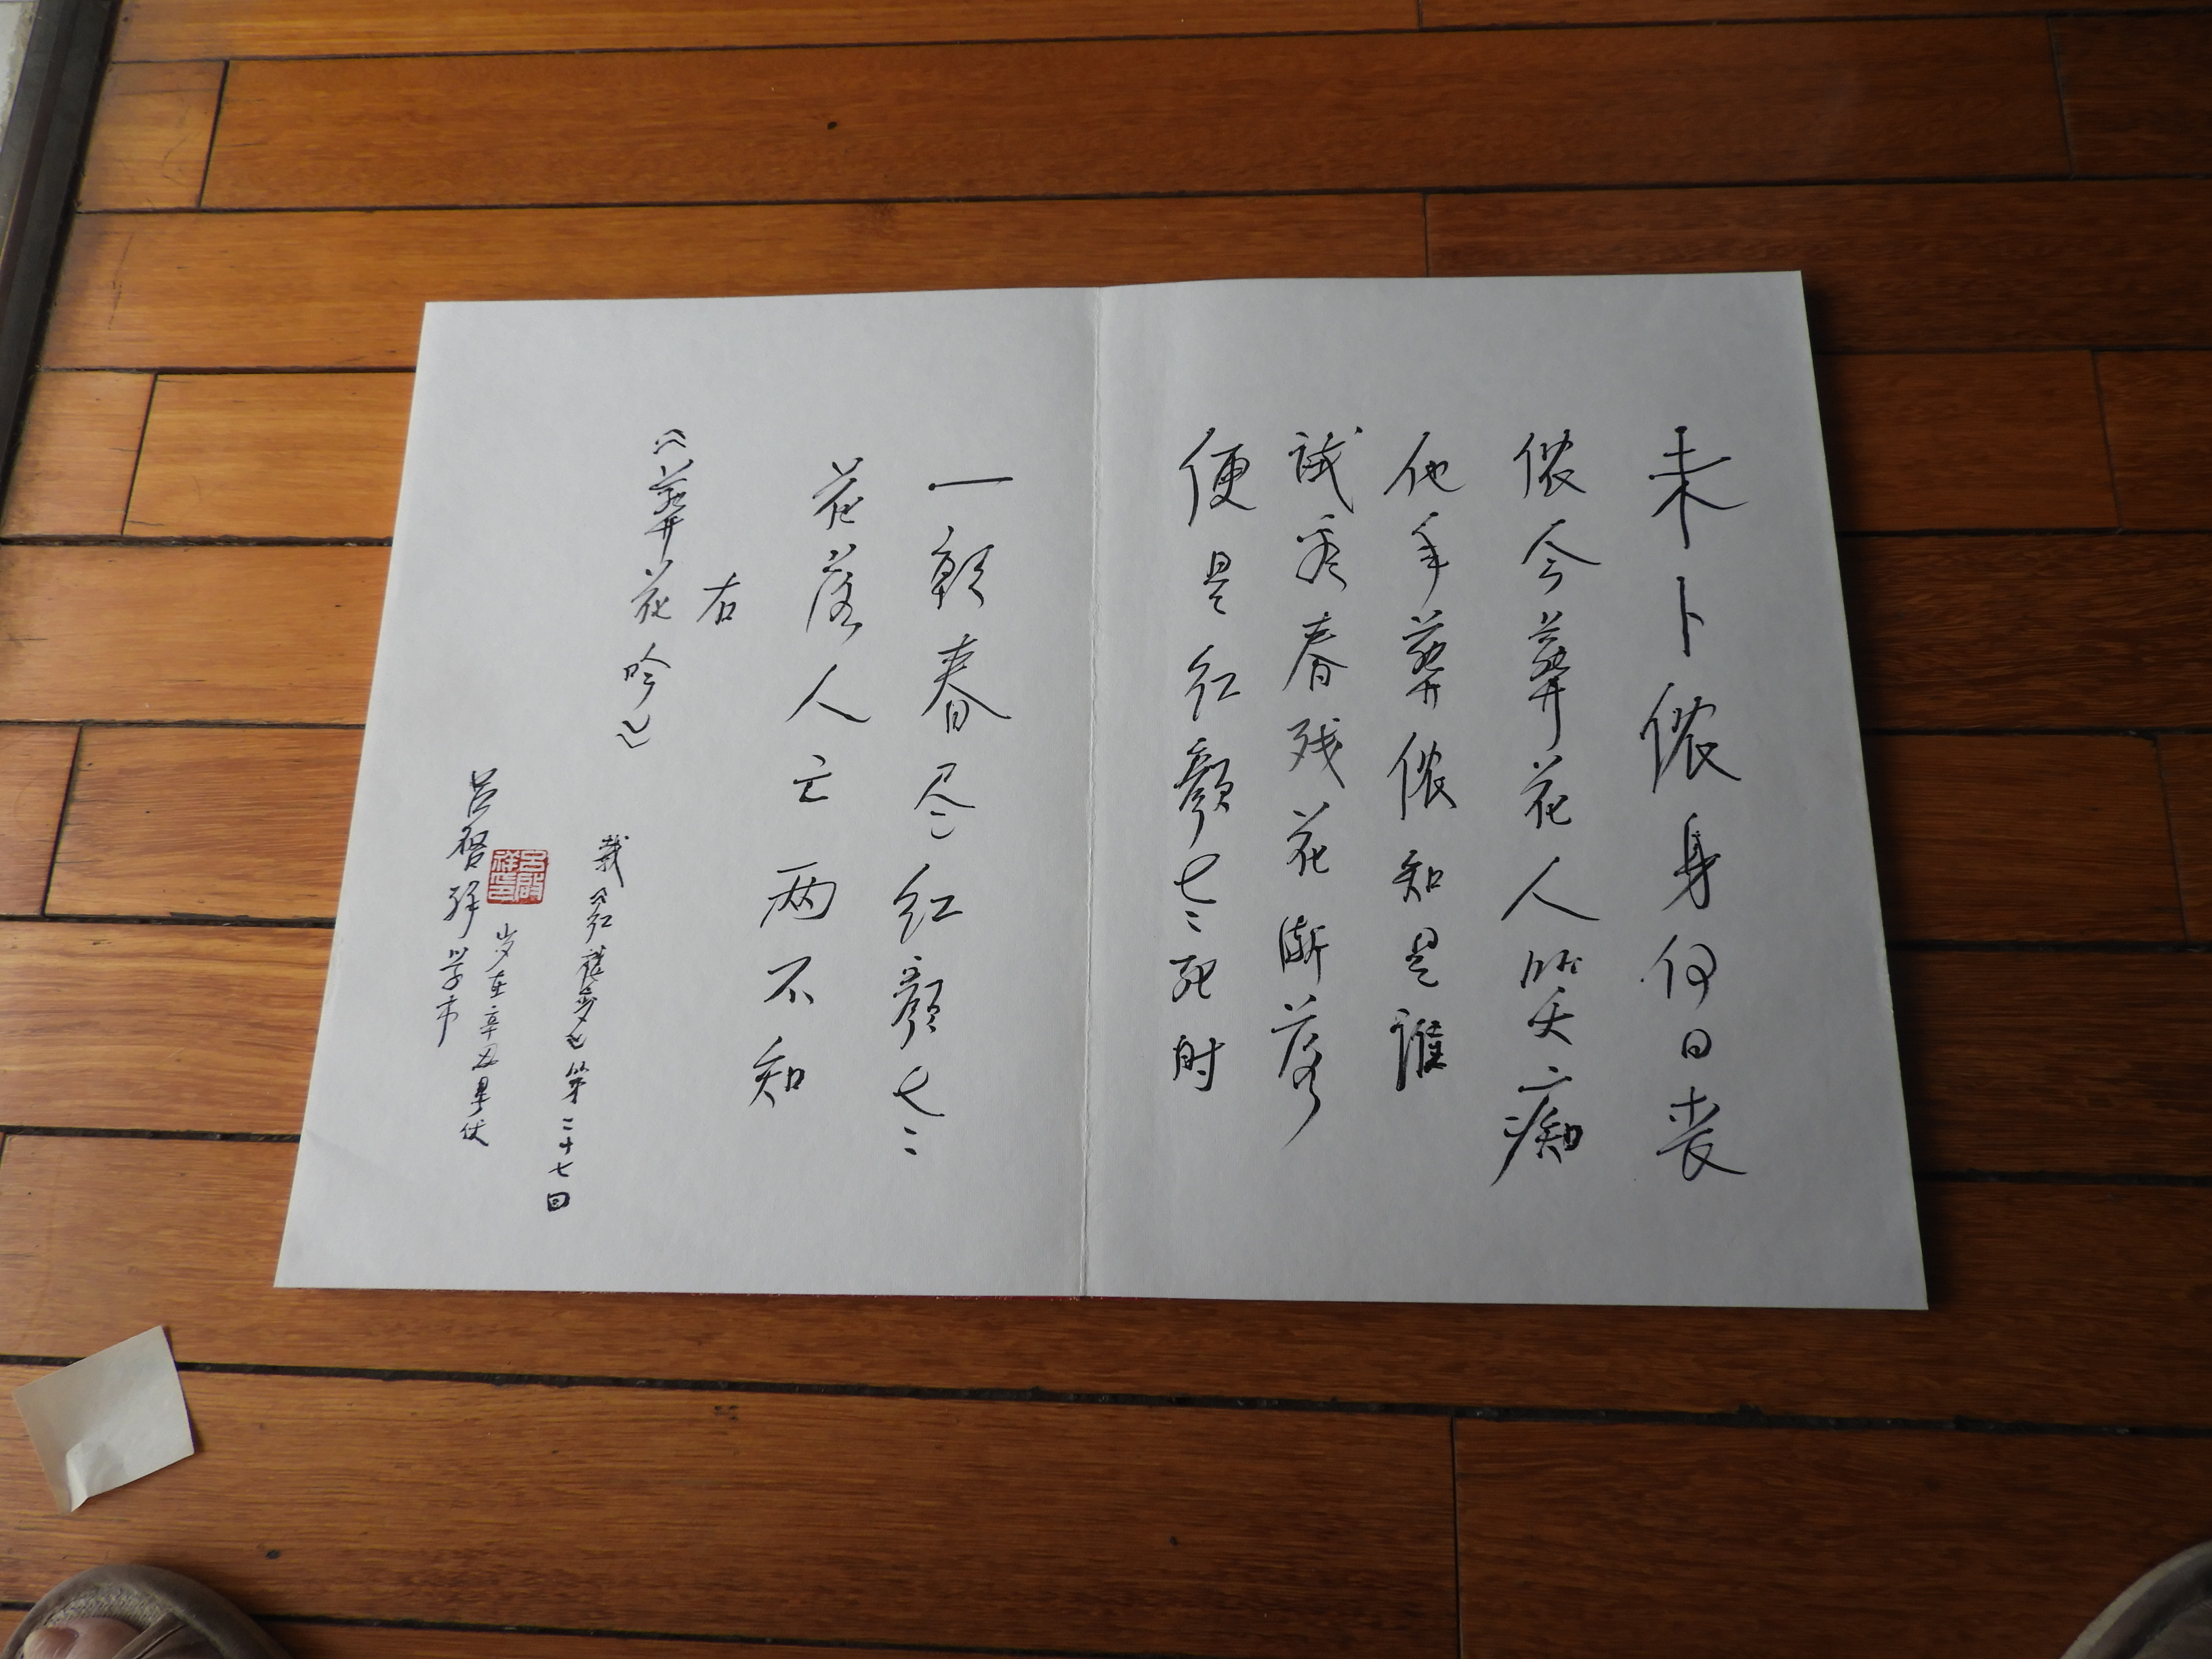 未卜侬身何日丧
侬今葬花人笑痴
他年葬侬知是谁
试看春残花渐落
便是红颜老死时
一朝春尽红颜老
花落人亡两不知
右
《葬花吟》
载《红楼梦》第二十七回
岁在辛丑伏
吕啓祥学书
吕啟祥印